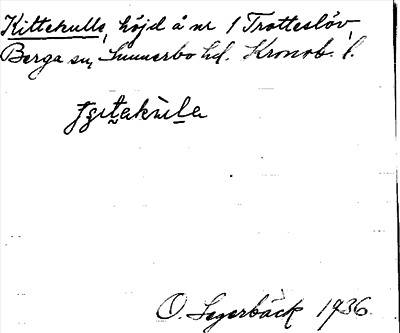 Kittekulle, höjd å nr 1 Trotteslöv,
Berga sn, Sunnerbo hd. Kronob. l.
O. Segerbäck 1936